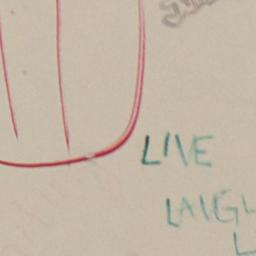 LIVE
LAUGH
L